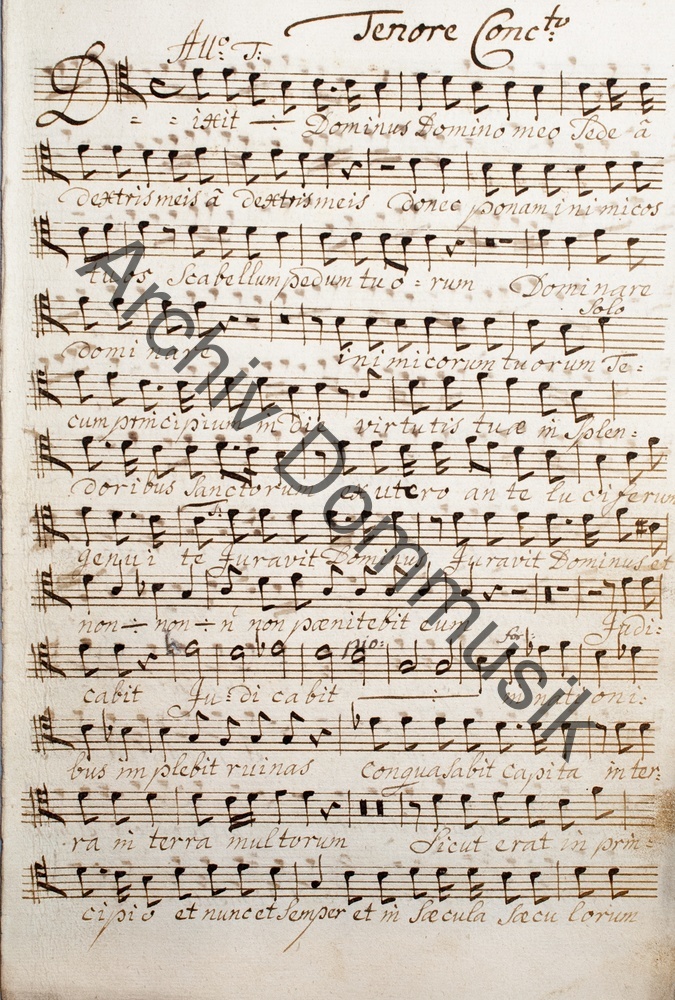 Tenore Conc:to
All:o T:
Dixit ÷ Dominus Domino meo Sede ã
dextris meis ã dextris meis donec ponam inimicos
tuos Scabellum pedum tuo=rum Dominare
Solo
dominare inimicorum tuorum Te=
cum principium in die virtutis tuæ in Splen=
doribus Sanctorum ex utero ante luciferum
genui te Juravit Dominus Juravit Dominus et
non ÷ non ÷ n non pænitebit eum Judi=
pio: for:
cabit Ju=di cabit ÷ in nationi=
bus implebit ruinas conquasabit capita in ter=
ra in terra multorum Sicut erat in prin=
cipio et nunc et Semper et in Sæcula Sæculorum
Archiv Dommusik